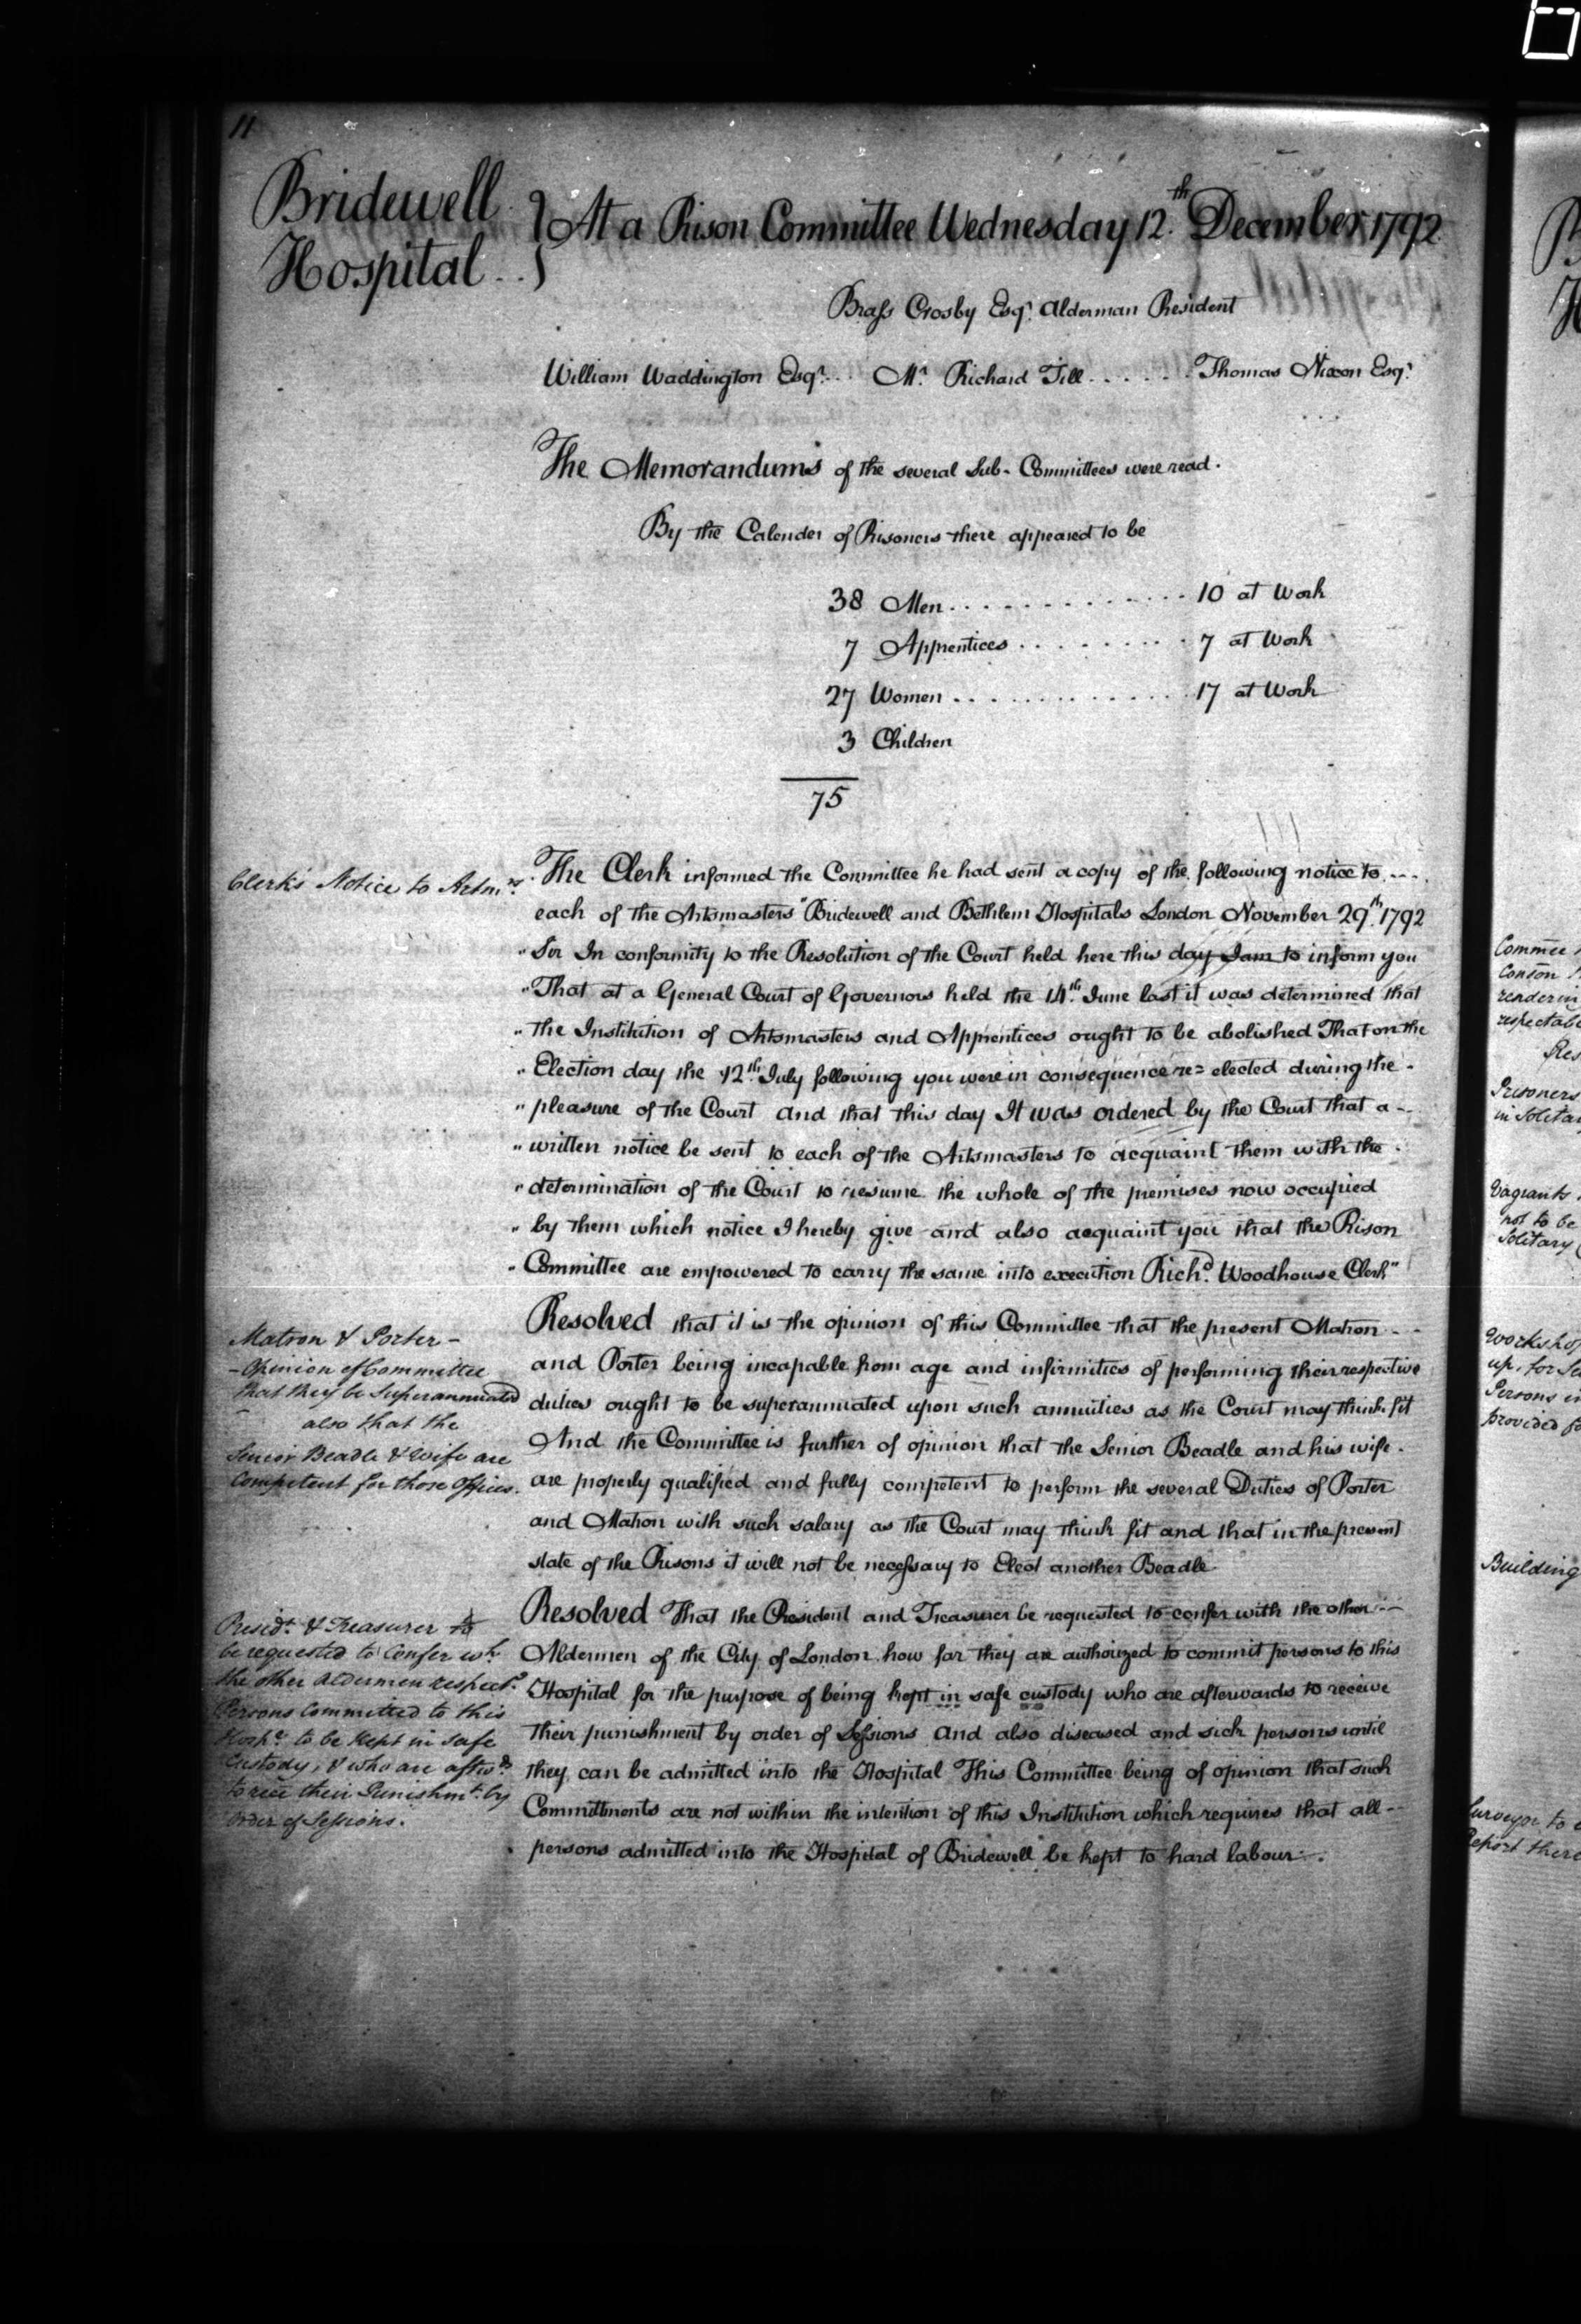 11
Bridewell
Hospital
At a Prison Committee Wednesday 12th December 1792
Brass Crosby Esqr. Alderman President
William Waddington Esqr... Mr. Richard Till...... Thomas Nixon Esqr.
The Memorandums of the several Sub-Committees were read.
By the Calender of Prisoners there appeared to be
38 Men............. 10 at Work
7 Apprentices......... 7 at Work
27 Women............. 17 at Work
3 Children
75
Clerk's Notice to Artmrs.
The Clerk informed the Committee he had sent a copy of the following notice to
each of the Artsmasters "Bridewell and Bethlem Hospitals London November 29th. 1792
"Sir In conformity to the Resolution of the Court held here this day I am to inform you
"That at a General Court of Governors held the 14th. June last it was determined that
"the Institution of Artsmasters and Apprentices ought to be abolished That on the
"Election day the 12th. July following you were in consequence re=elected during the
"pleasure of the Court and that this day It was ordered by the Court that a
"written notice be sent to each of the Artsmasters to acquaint them with the
"determination of the Court to resume the whole of the premises now occupied
"by them which notice I hereby give and also acquaint you that the Prison
"Committee are empowered to carry the same into execution Richd. Woodhouse Clerk"
Matron & Porter -
- Opinion of Committee
that they be Superannuated
also that the
Senior Beadle & Wife are
Competent for those Offices.
Resolved that it is the opinion of this Committee that the present Matron
and Porter being incapable from age and infirmities of performing their respective
duties ought to be superannuated upon such annuities as the Court may think fit
And the Committee is further of opinion that the Senior Beadle and his wife
are properly qualified and fully competent to perform the several Duties of Porter
and Matron with such salary as the Court may think fit and that in the present
state of the Prisons it will not be necessary to Elect another Beadle
Presidt. & Treasurer to
be requested to Confer wth.
the other Aldermen respectg.
Persons Committed to this
Hospl. to be Kept in safe
Custody, & who are aftwds.
to rece their Punishmt. by
order of Sessions.
Resolved That the President and Treasurer be requested to confer with the other
Aldermen of the City of London how far they are authorized to commit persons to this
Hospital for the purpose of being kept in safe custody who are afterwards to receive
their punishment by order of Sessions and also diseased and sick persons until
they can be admitted into the Hospital This Committee being of opinion that such
Committments are not within the intention of this Institution which requires that all
persons admitted into the Hospital of Bridewell be kept to hard labour.
Commee
Conson
respectable
Prisoners
in Solitary
Vagrants
not to be
Solitary
up, for
Persons in
provided fo
Building
Surveyor to
Report there